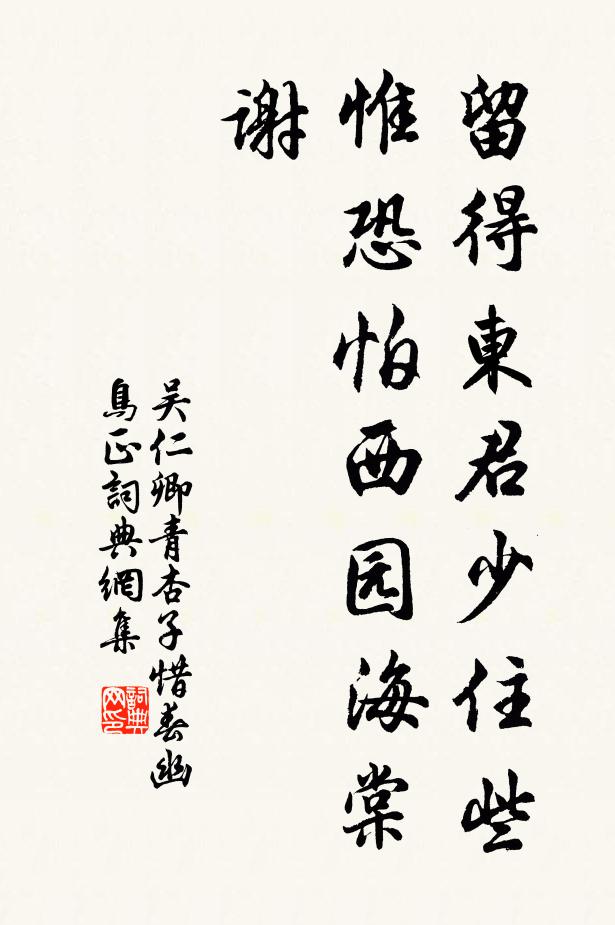 留得東君少住些
惟恐怕西园海棠
謝
吴仁卿青杏子惜春幽
鳥正詞典網集
詞典网印